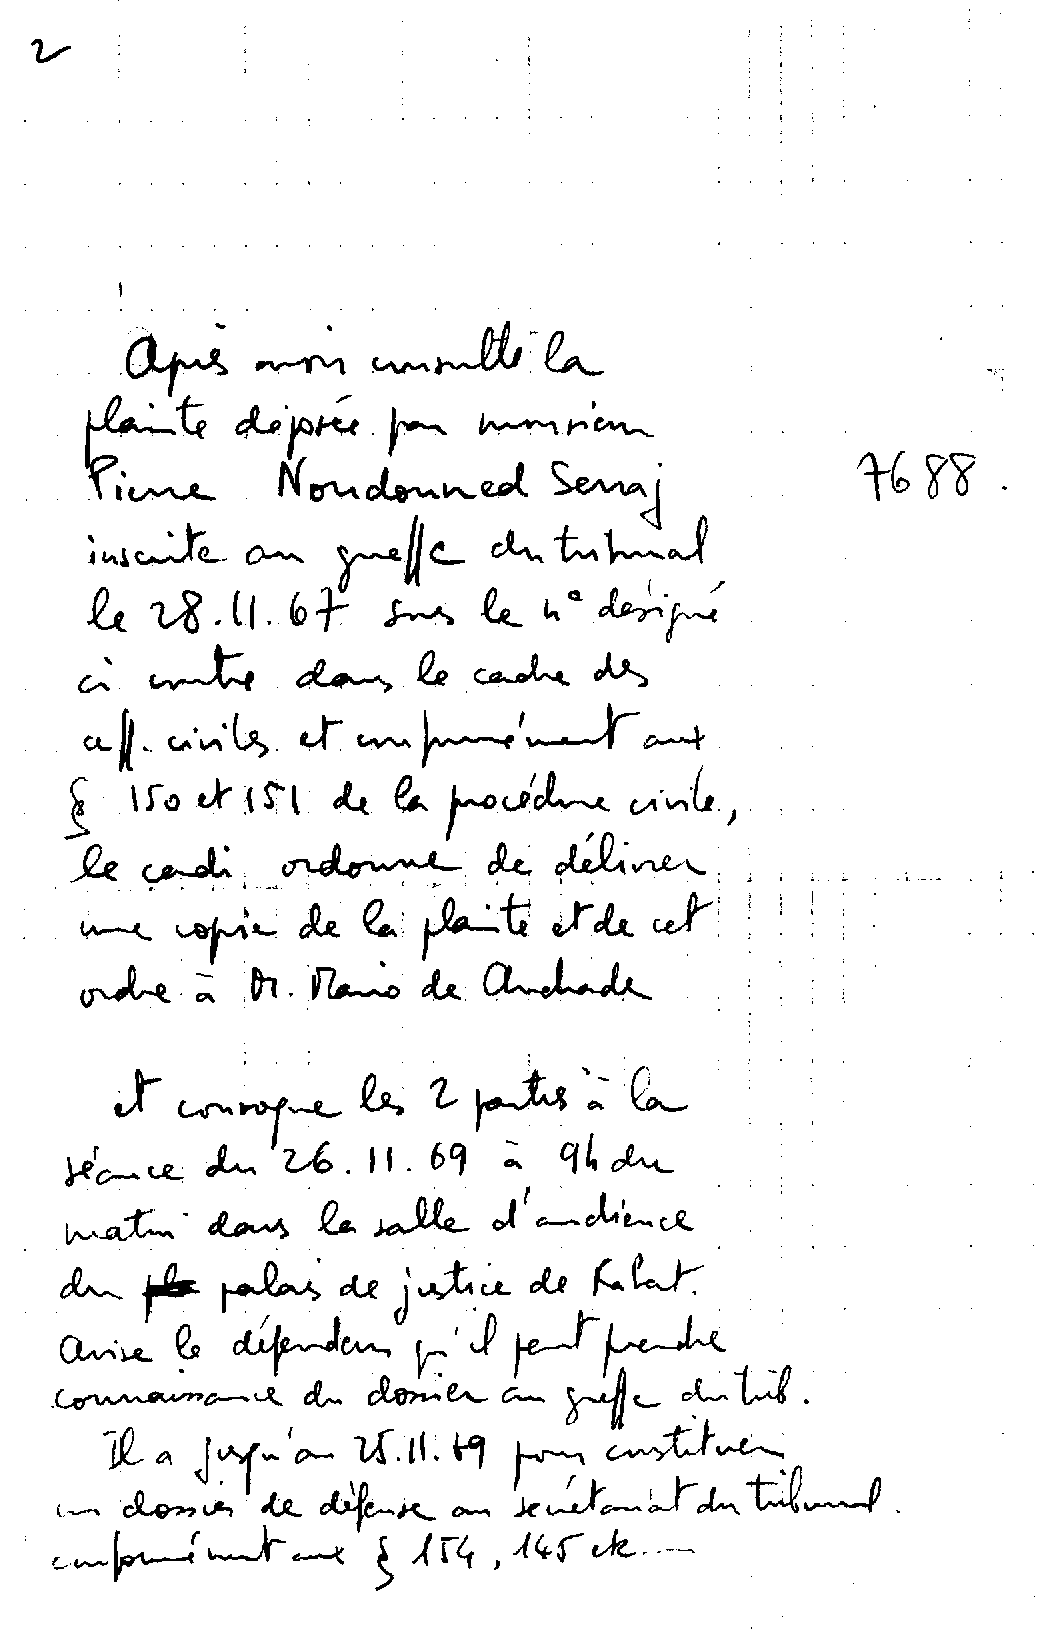 2
Après avoir consulté la
plainte déposée par monsieur
Pierre Nourdouned Serraj
7688.
inscrite au greffe du tribunal
le 28.11.67 sous le n° désigné
ci contre dans le cadre des
aff. civiles et conformément aux
§ 150 et 151 de la procédure civile,
le cadi ordonne de délivrer
une copie de la plainte et de cet
ordre à M. Mario de Andrade
et convoque les 2 parties à la
séance du 26.11.69 à 9h du
matin dans la salle d'audience
du palais de justice de Rabat.
Avise le défendeur qu'il peut prendre
connaissance du dossier au greffe du trib.
Il a jusqu'au 25.11.69 pour constituer
un dossier de défense au secrétariat du tribunal.
conformément aux § 154, 145 etc...